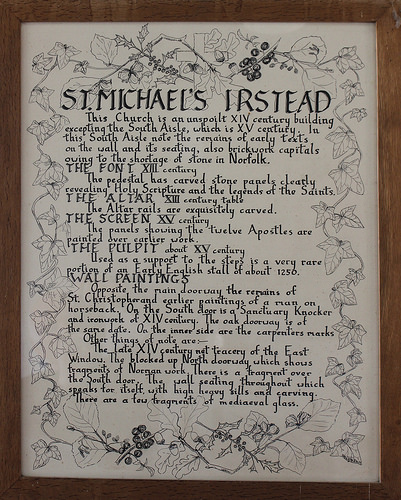 ST. MICHAEL'S IRSTEAD
This Church is an unspoilt XIV century building
excepting the South Aisle, which is XV century. In
this South Aisle note the remains of early texts
on the wall and its seating, also brickwork capitals
owing to the shortage of stone in Norfolk.
THE FONT XIII century
The pedestal has carved stone panels clearly
revealing Holy Scripture and the legends of the Saints.
THE ALTAR XIII century table
The Altar rails are exquisitely carved.
THE SCREEN XV century
The panels showing the twelve Apostles are
painted over earlier work.
THE PULPIT about XV century
Used as a support to the steps is a very rare
portion of an Early English stall of about 1250.
WALL PAINTINGS
Opposite the main doorway the remains of
St. Christopher and earlier paintings of a man on
horseback. On the South door is a Sanctuary Knocker
and ironwork of XIV century. The oak doorway is of
the same date. On the inner side are the carpenters marks
Other things of note are:-
The late XIV century net tracery of the East
Window. The blocked up North doorway which shows
fragments of Norman work. There is a fragment over
the South door. The wall seating throughout which
speaks for itself with high heavy sills and carving.
There are a few fragments of mediaeval glass.